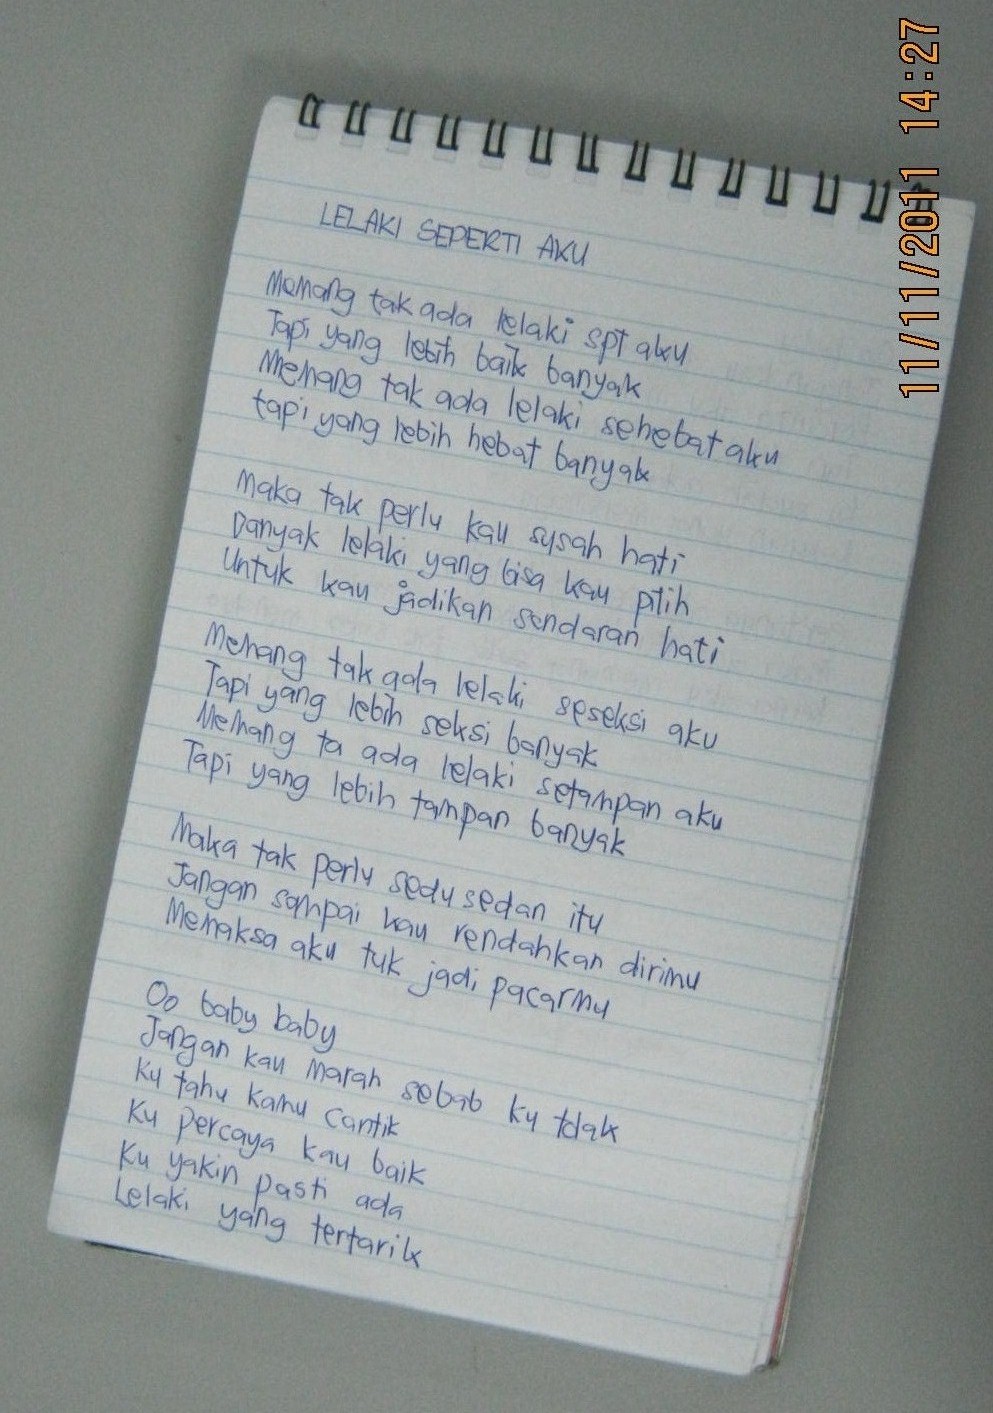 LELAKI SEPERTI AKU
Memang tak ada lelaki spt aku
Tapi yang lebih baik banyak
Memang tak ada lelaki sehebat aku
tapi yang lebih hebat banyak
Maka tak perlu kau susah hati
Banyak lelaki yang bisa kau pilih
Untuk kau jadikan sendaran hati
Memang tak ada lelaki seseksi aku
Tapi yang lebih seksi banyak
Memang ta ada lelaki setampan aku
Tapi yang lebih tampan banyak
Maka tak perlu sedu sedan itu
Jangan sampai kau rendahkan dirimu
Memaksa aku tuk jadi pacarmu
Oo baby baby
Jangan kau marah sebab ku tolak
Ku tahu kamu cantik
Ku percaya kau baik
Ku yakin pasti ada
Lelaki yang tertarik
11/11/2011 14:27